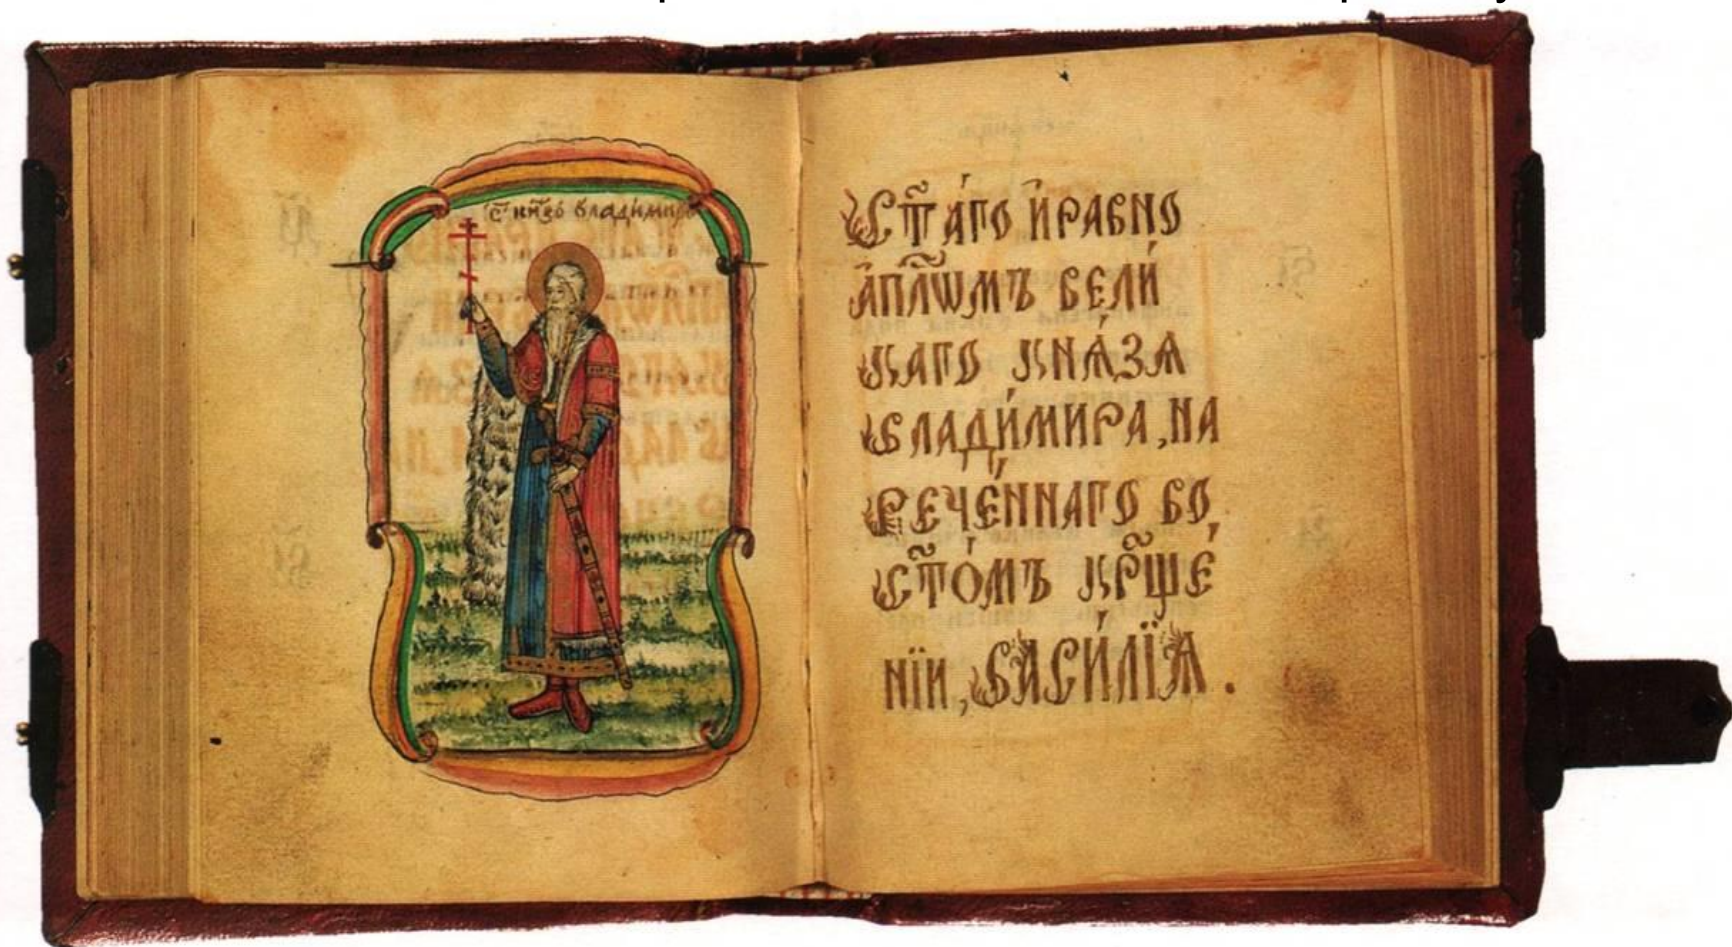 с҃ кн҃зь владимиръ
Ст҃а́гѡ и҆ равно
а҆пⷭ҇лѡмъ вели́
каго кнѧ́зѧ
влади́мира, на
рече́ннаго во,
ст҃о́мъ кр҃ще́
нїи, васи́лїѧ.